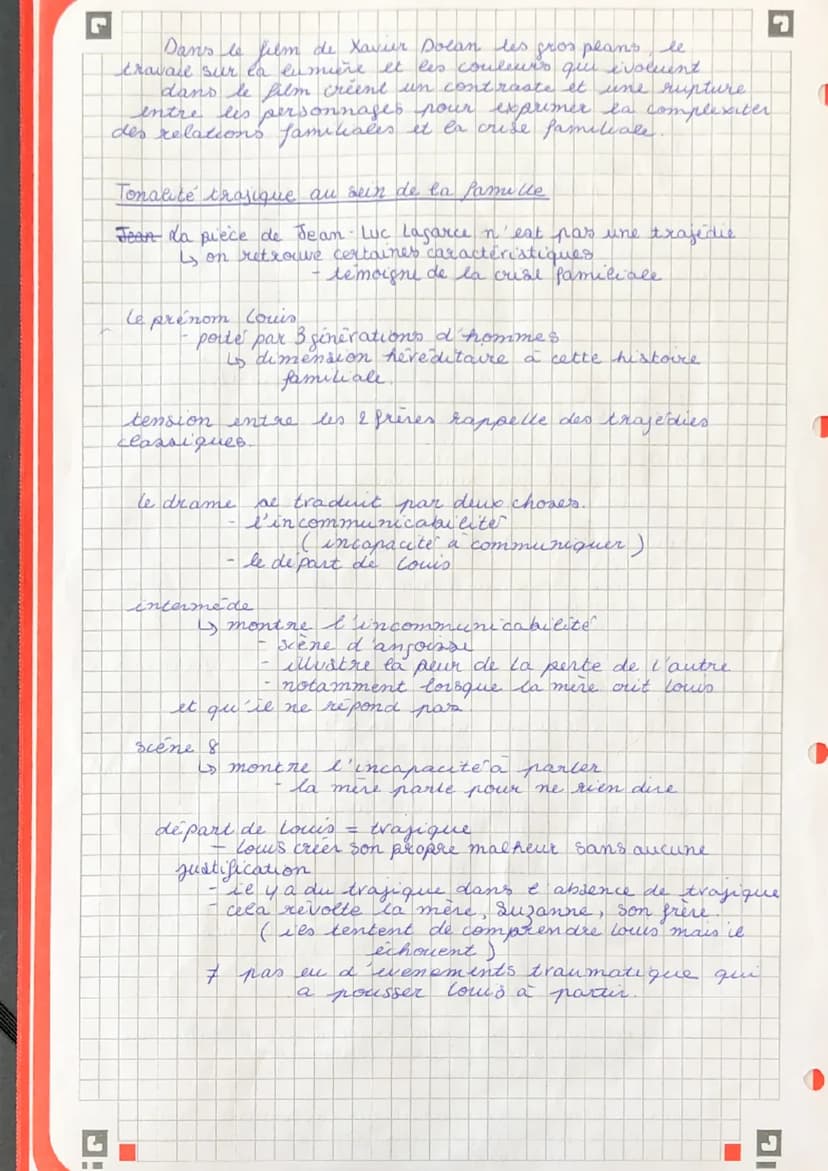 Dans le film de Xavier Dolan les gros plans, le
travail sur la lumière et les couleurs qui évoluent
dans le film créent un contraste et une rupture
entre les personnages pour exprimer la complexiter
des relations familiales et la crise familiale.
Tonalité trajique au sein de la famille
Jean La pièce de Jean-Luc Lagarce n'est pas une trajédie
↳ on retrouve certaines caractéristiques
- témoigne de la crise familiale
le prénom Louis
- porté par 3 générations d'hommes
↳ dimension héréditaire à cette histoire
familiale.
tension entre les 2 frères rappelle des trajédies
classiques.
le drame se traduit par deux choses.
- l'incommunicabilité
(incapacité à communiquer)
- le départ de Louis
intermède
↳ montre l'incommunicabilité
- scène d'angoisse
- illustre la peur de la perte de l'autre
- notamment lorsque la mère crit Louis
et qu'il ne répond pas
scène 8
↳ montre l'incapacité à parler
- la mère parle pour ne rien dire
départ de Louis = trajique
- Louis créer son propre malheur sans aucune
justification
- il y a du trajique dans l'absence de trajique
- cela révolte la mère, Suzanne, son frère.
(ils tentent de comprendre Louis mais ie
échouent)
≠ pas eu d'évenements traumatique qui
a pousser Louis à partir.